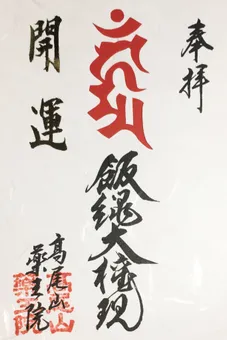 奉拝
飯縄大権現
開運
高尾山
薬王院